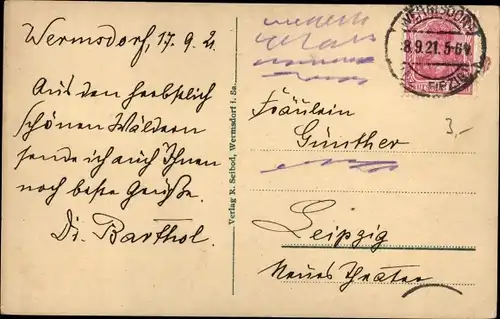 Wermsdorf, 17.9.21
Aus den herbstlich
schönen Wäldern
sende ich auch Ihnen
noch beste Grüße.
Dr. Barthol.
Verlag R. Seibod, Wermsdorf i. Sa.
WERMSDORF
8.9.21. 5-6 N
LEIPZIG
3,-
Fräulein
Günther
Leipzig
Neues Theater